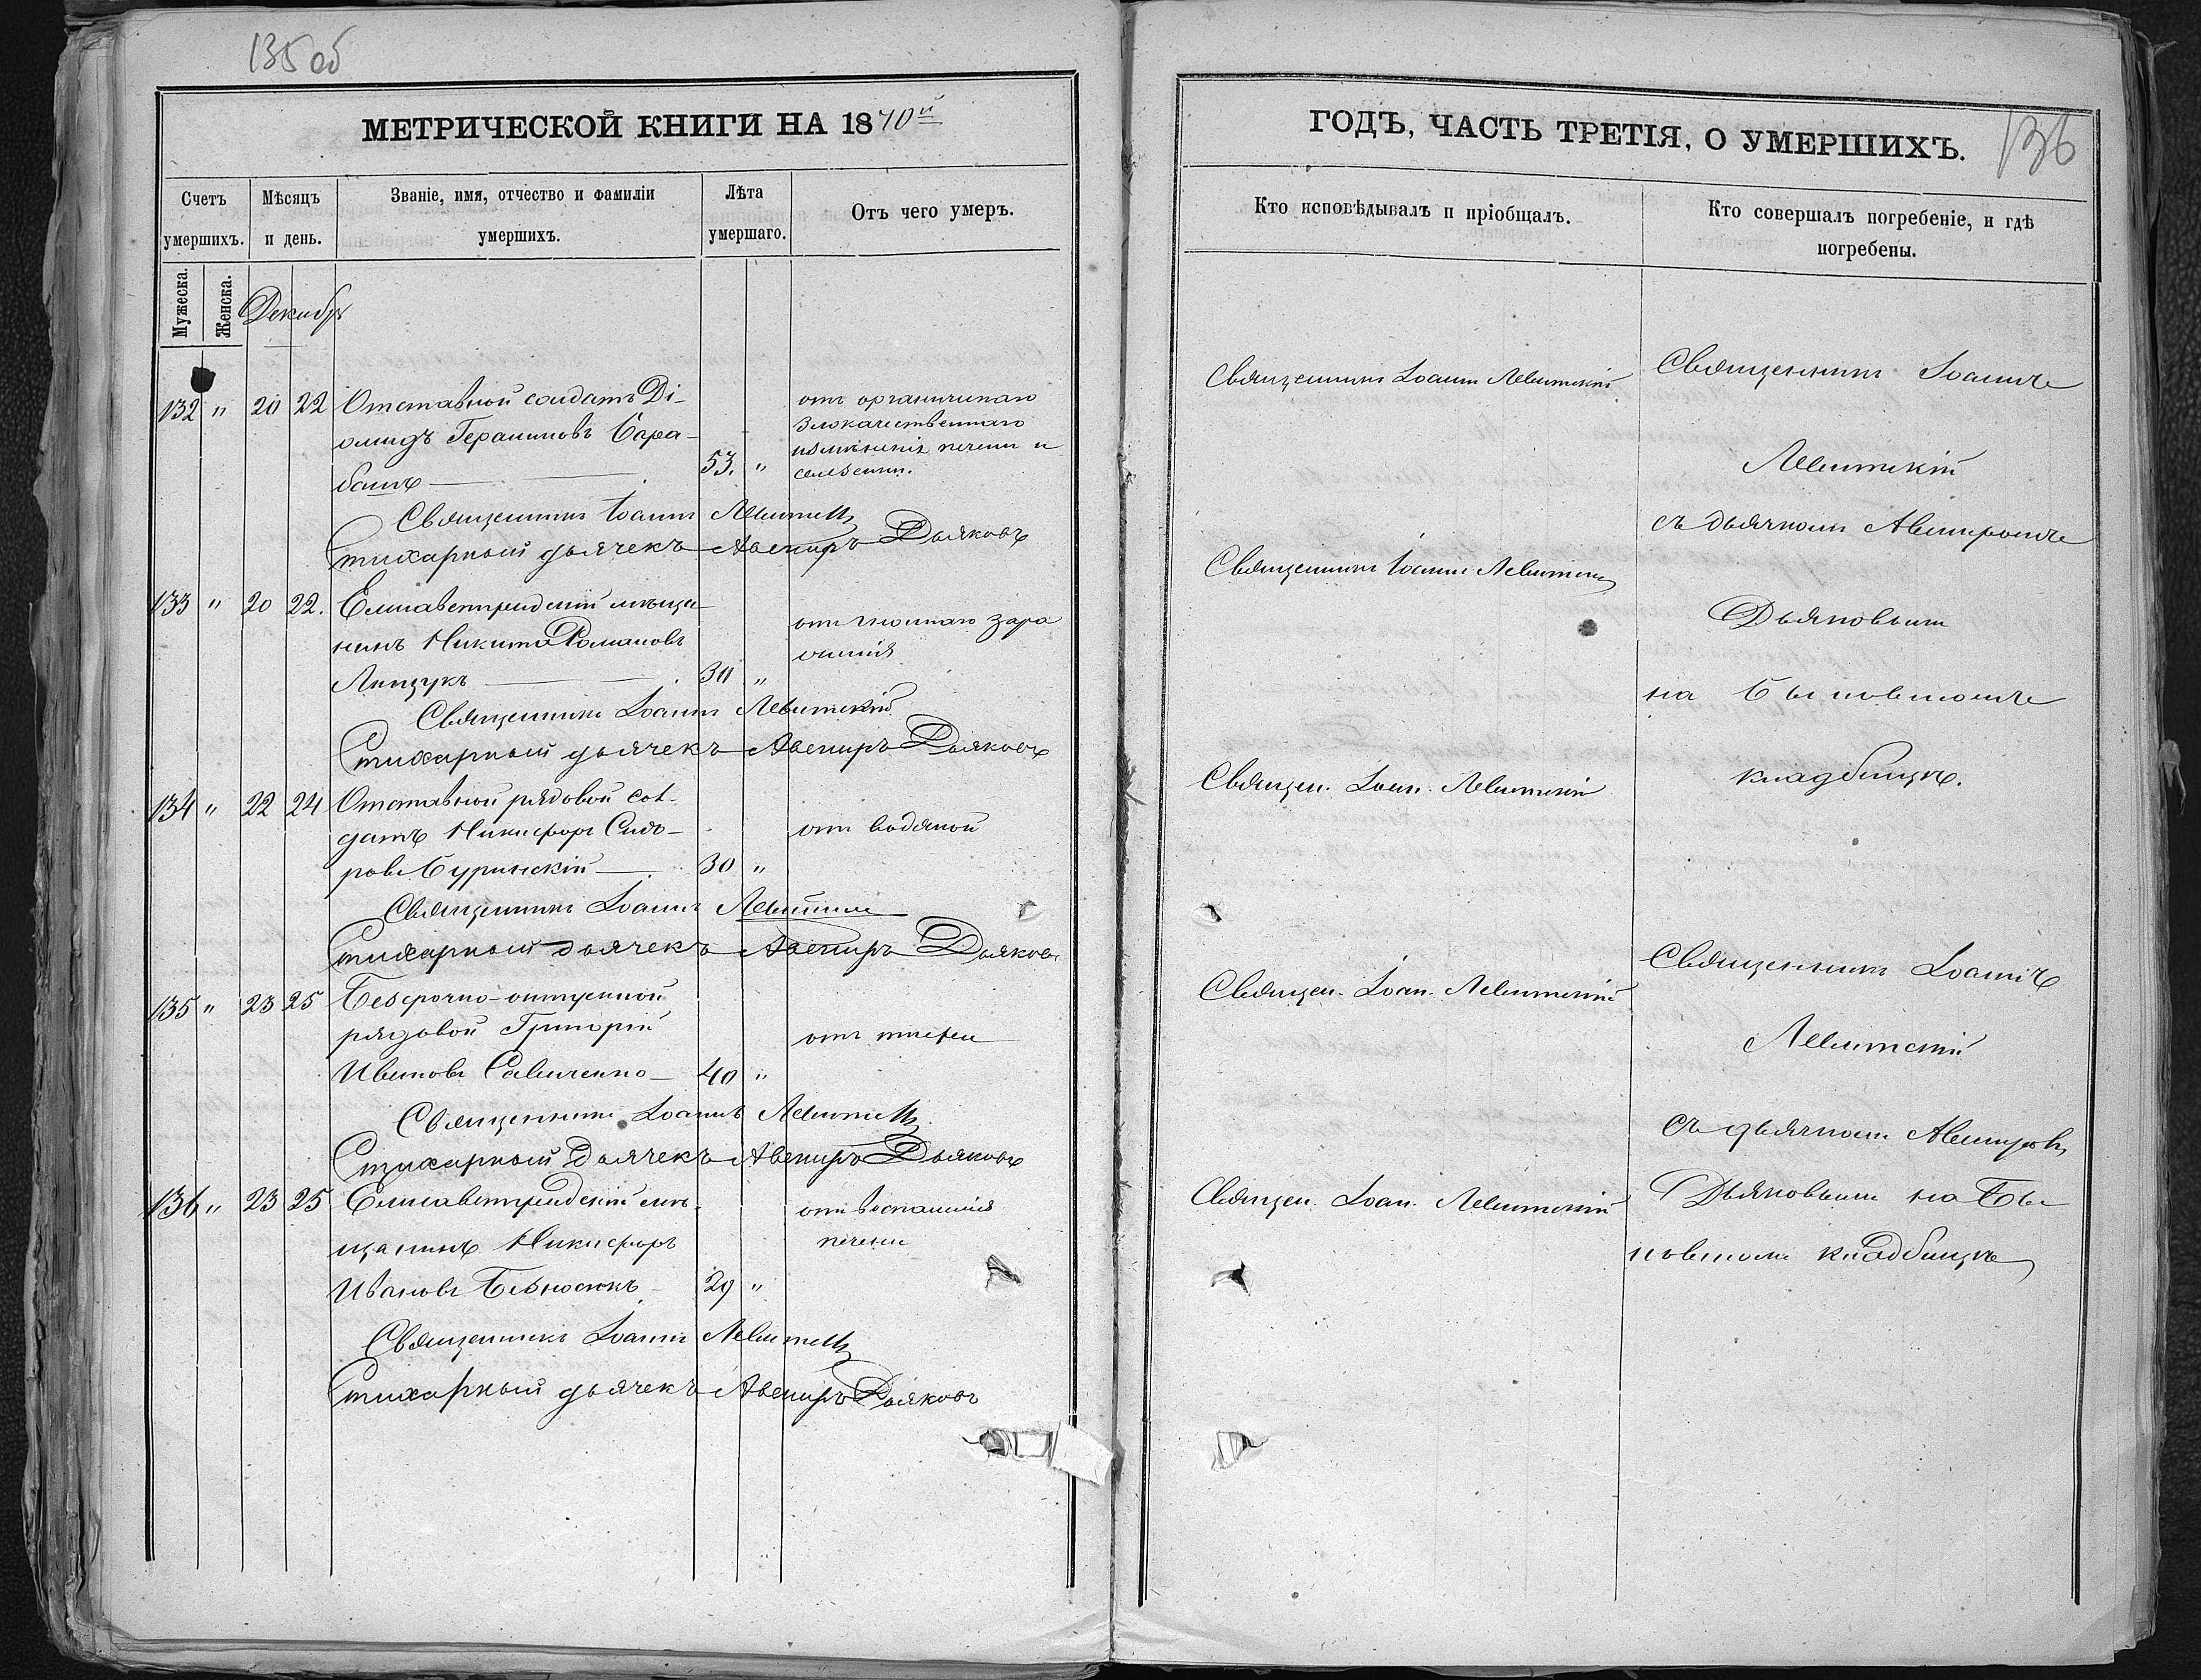 135 об
МЕТРИЧЕСКОЙ КНИГИ НА 1870й
Счетъ умершихъ.
Мужеска.
Женска.
Мѣсяцъ и день.
Званіе, имя, отчество и фамиліи умершихъ.
Лѣта умершаго.
Отъ чего умеръ.
Декабр
132 " 20 22 Отставной солдатъ Ді-
омидъ
башъ 53. "
отъ органичнаго
злокачественнаго
измѣненія печени и
селезенки.
Священникъ Іоаннъ Левитскій
Стихарный дьячекъ Авениръ Дьяковъ
133 " 20 22. Елисаветградскій мѣща-
нинъ Никита Романовъ
30 "
отъ гнойнаго зара
Священникъ Іоаннъ Левитскій
Стихарный дьячекъ Авениръ Дьяковъ
134 " 22 24 Отставной рядовой сол-
датъ Никифоръ Сидо-
ровъ 30 "
отъ водяной
Священникъ Іоаннъ Левитскій
Стихарный дьячекъ Авениръ Дьяковъ
135 " 23 25 Безсрочно-отпускной
рядовой Григорій
Ивановъ Савиченко 40 "
отъ тифа
Священникъ Іоаннъ Левитскій
Стихарный дьячекъ Авениръ Дьяковъ
136 " 23 25 Елисаветградскій мѣ-
щанинъ Никифоръ
Ивановъ 29 "
отъ воспаленія
печени
Священникъ Іоаннъ Левитскій
Стихарный дьячекъ Авениръ Дьяковъ
136
ГОДЪ, ЧАСТЬ ТРЕТІЯ, О УМЕРШИХЪ.
Кто исповѣдывалъ и пріобщалъ.
Кто совершалъ погребеніе, и гдѣ
погребены.
Священникъ Іоаннъ Левитскій
Священникъ Іоаннъ Левитскій
Священ. Іоан. Левитскій
Священ. Іоан. Левитскій
Священ. Іоан. Левитскій
Священникъ Іоаннъ
Левитскій
съ дьячкомъ Авениромъ
Дьяковымъ
на Быковскомъ
кладбищѣ.
Священникъ Іоаннъ
Левитскій
съ дьячкомъ Авениромъ
Дьяковымъ на Бы
ковскомъ кладбищѣ